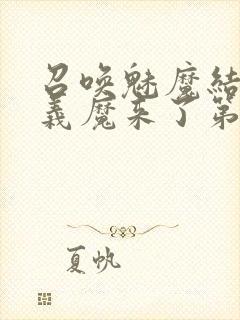 召唤魅魔结
义魔来了第
夏帆